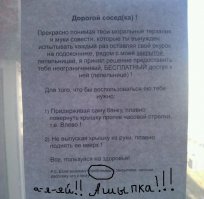 Дорогой сосед(ка) !
Прекрасно понимая твои моральные терзания
и муки совести, которые ты вынужден
испытывать каждый раз оставляя свой окурок
на подоконнике, рядом с моей закрытой
пепельницей, я принял решение предоставить
тебе неограниченный, БЕСПЛАТНЫЙ доступ к
ней (пепельнице) !
Для того, что бы воспользоваться ею тебе
нужно:
1) Придерживая саму банку, плавно
повернуть крышку против часовой стрелки,
т.е. Влево !
2) Не выпуская крышку из руки, плавно
поднять ее вверх !
Вот, пользуйся на здоровье!
P.S. Если возникнут
а-я-яй!! Ашыпка!!!